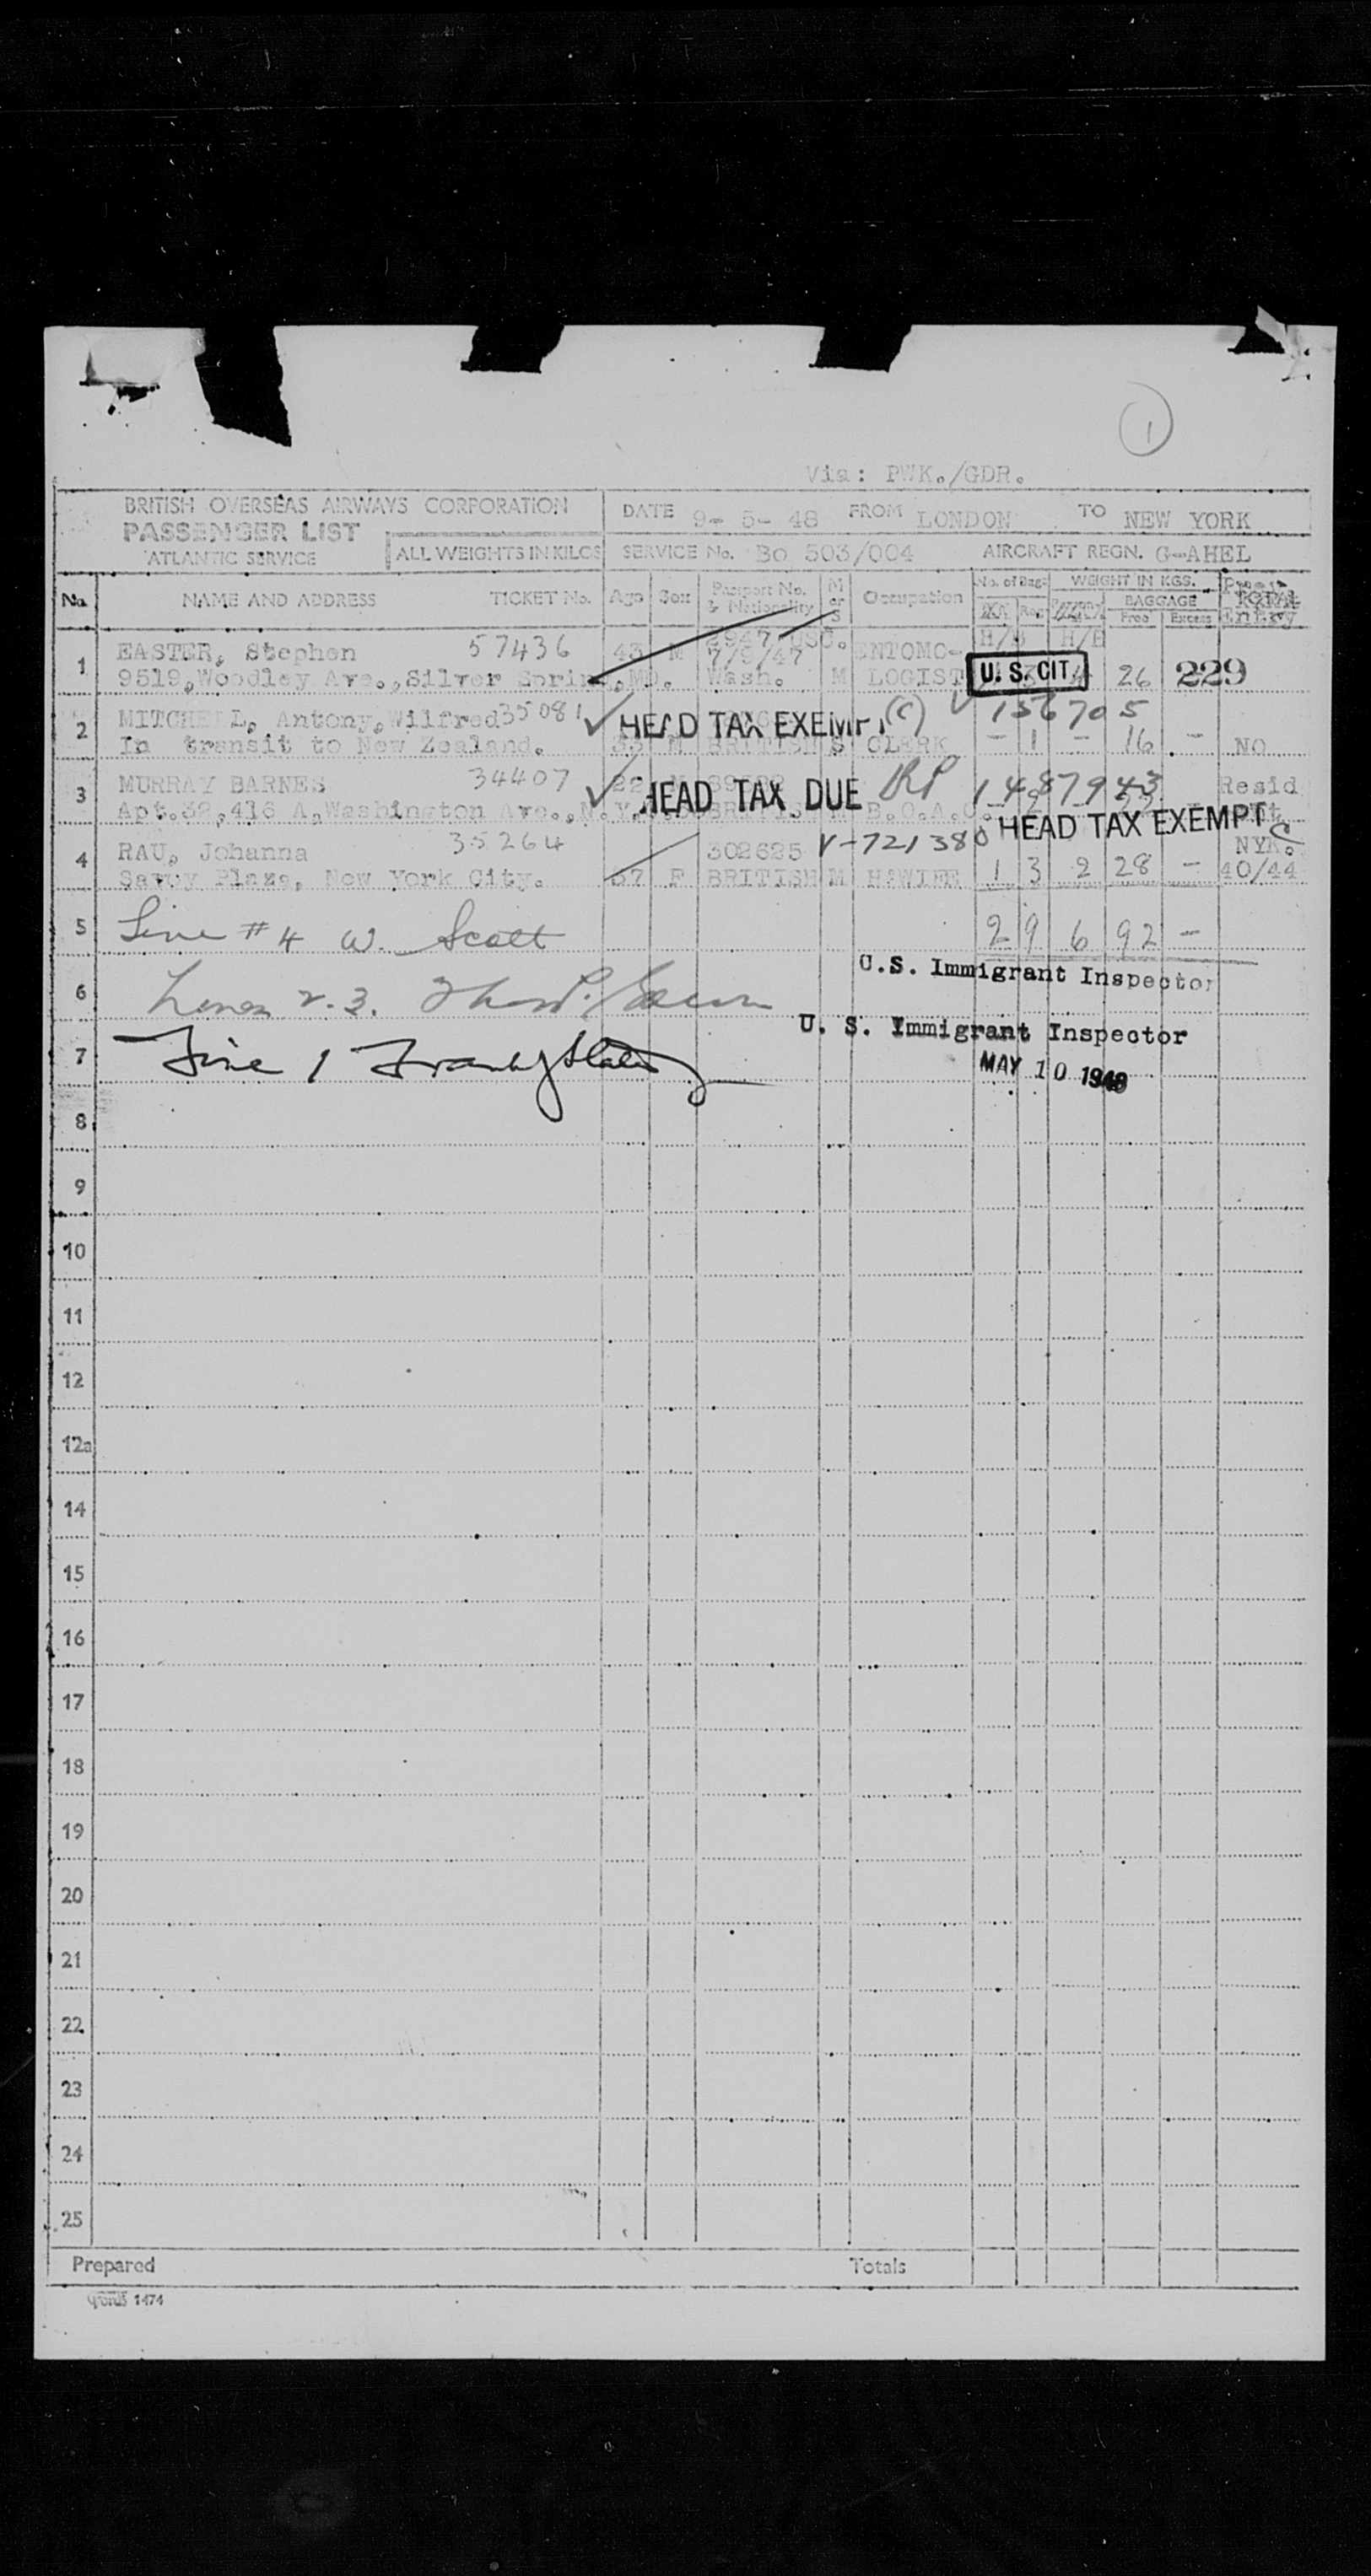 1
Via: PWK./GDR.
BRITISH OVERSEAS AIRWAYS CORPORATION
PASSENGER LIST
ATLANTIC SERVICE
ALL WEIGHTS IN KILOS
DATE 9-5-48 FROM LONDON TO NEW YORK
SERVICE No. Bo 303/004 AIRCRAFT REGN. G-AHEL
No. NAME AND ADDRESS TICKET No. Age Sex Passport No. & Nationality M or S Occupation No. of Bags Reg. WEIGHT IN KGS. BAGGAGE Free Excess TOTAL Entry
H/B H/B
1 EASTER, Stephen 57436 43 M 7/9/47 ENTOMO-
9519,Woodley Ave.,Silver Spring,MD. Wash. M LOGIST U. S. CIT. 26 229
2 MITCHELL, Antony,Wilfred 35081 HEAD TAX EXEMPT (C) 156705
In transit to New Zealand. 33 M BRITISH S CLERK - 1 - 16 - NO
3 MURRAY BARNES 34407 22 HEAD TAX DUE 1487943 Resid
Apt.32,416 A,Washington Ave.,N.Y. BRITISH B.O.A.C.
HEAD TAX EXEMPT C
4 RAU, Johanna 35264 302625 V-721380 NYK.
Savoy Plaza, New York City. 57 F BRITISH M H.WIFE 1 3 2 28 - 40/44
5 Line #4 W. Scott 2 9 6 92 -
U.S. Immigrant Inspector
6 Lines 2.3.
U. S. Immigrant Inspector
7 Line 1
MAY 10 1948
8
9
10
11
12
12a
14
15
16
17
18
19
20
21
22
23
24
25
Prepared Totals
1474